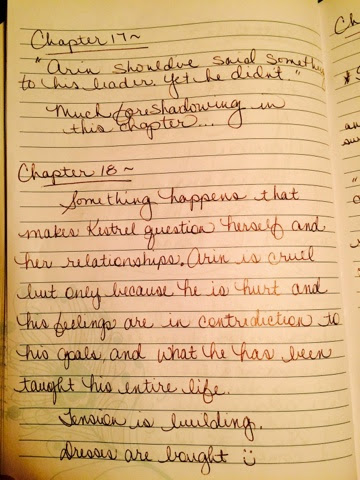 Chapter 17~
"Arin should've said something
to his leader. Yet he didn't"
Much foreshadowing in
this chapter...
Chapter 18~
Something happens that
makes Kestrel question herself and
her relationships. Arin is cruel
but only because he is hurt and
his feelings are in contradiction to
his goals, and what he has been
taught his entire life.
Tension is building.
Dresses are bought ☺
Ch